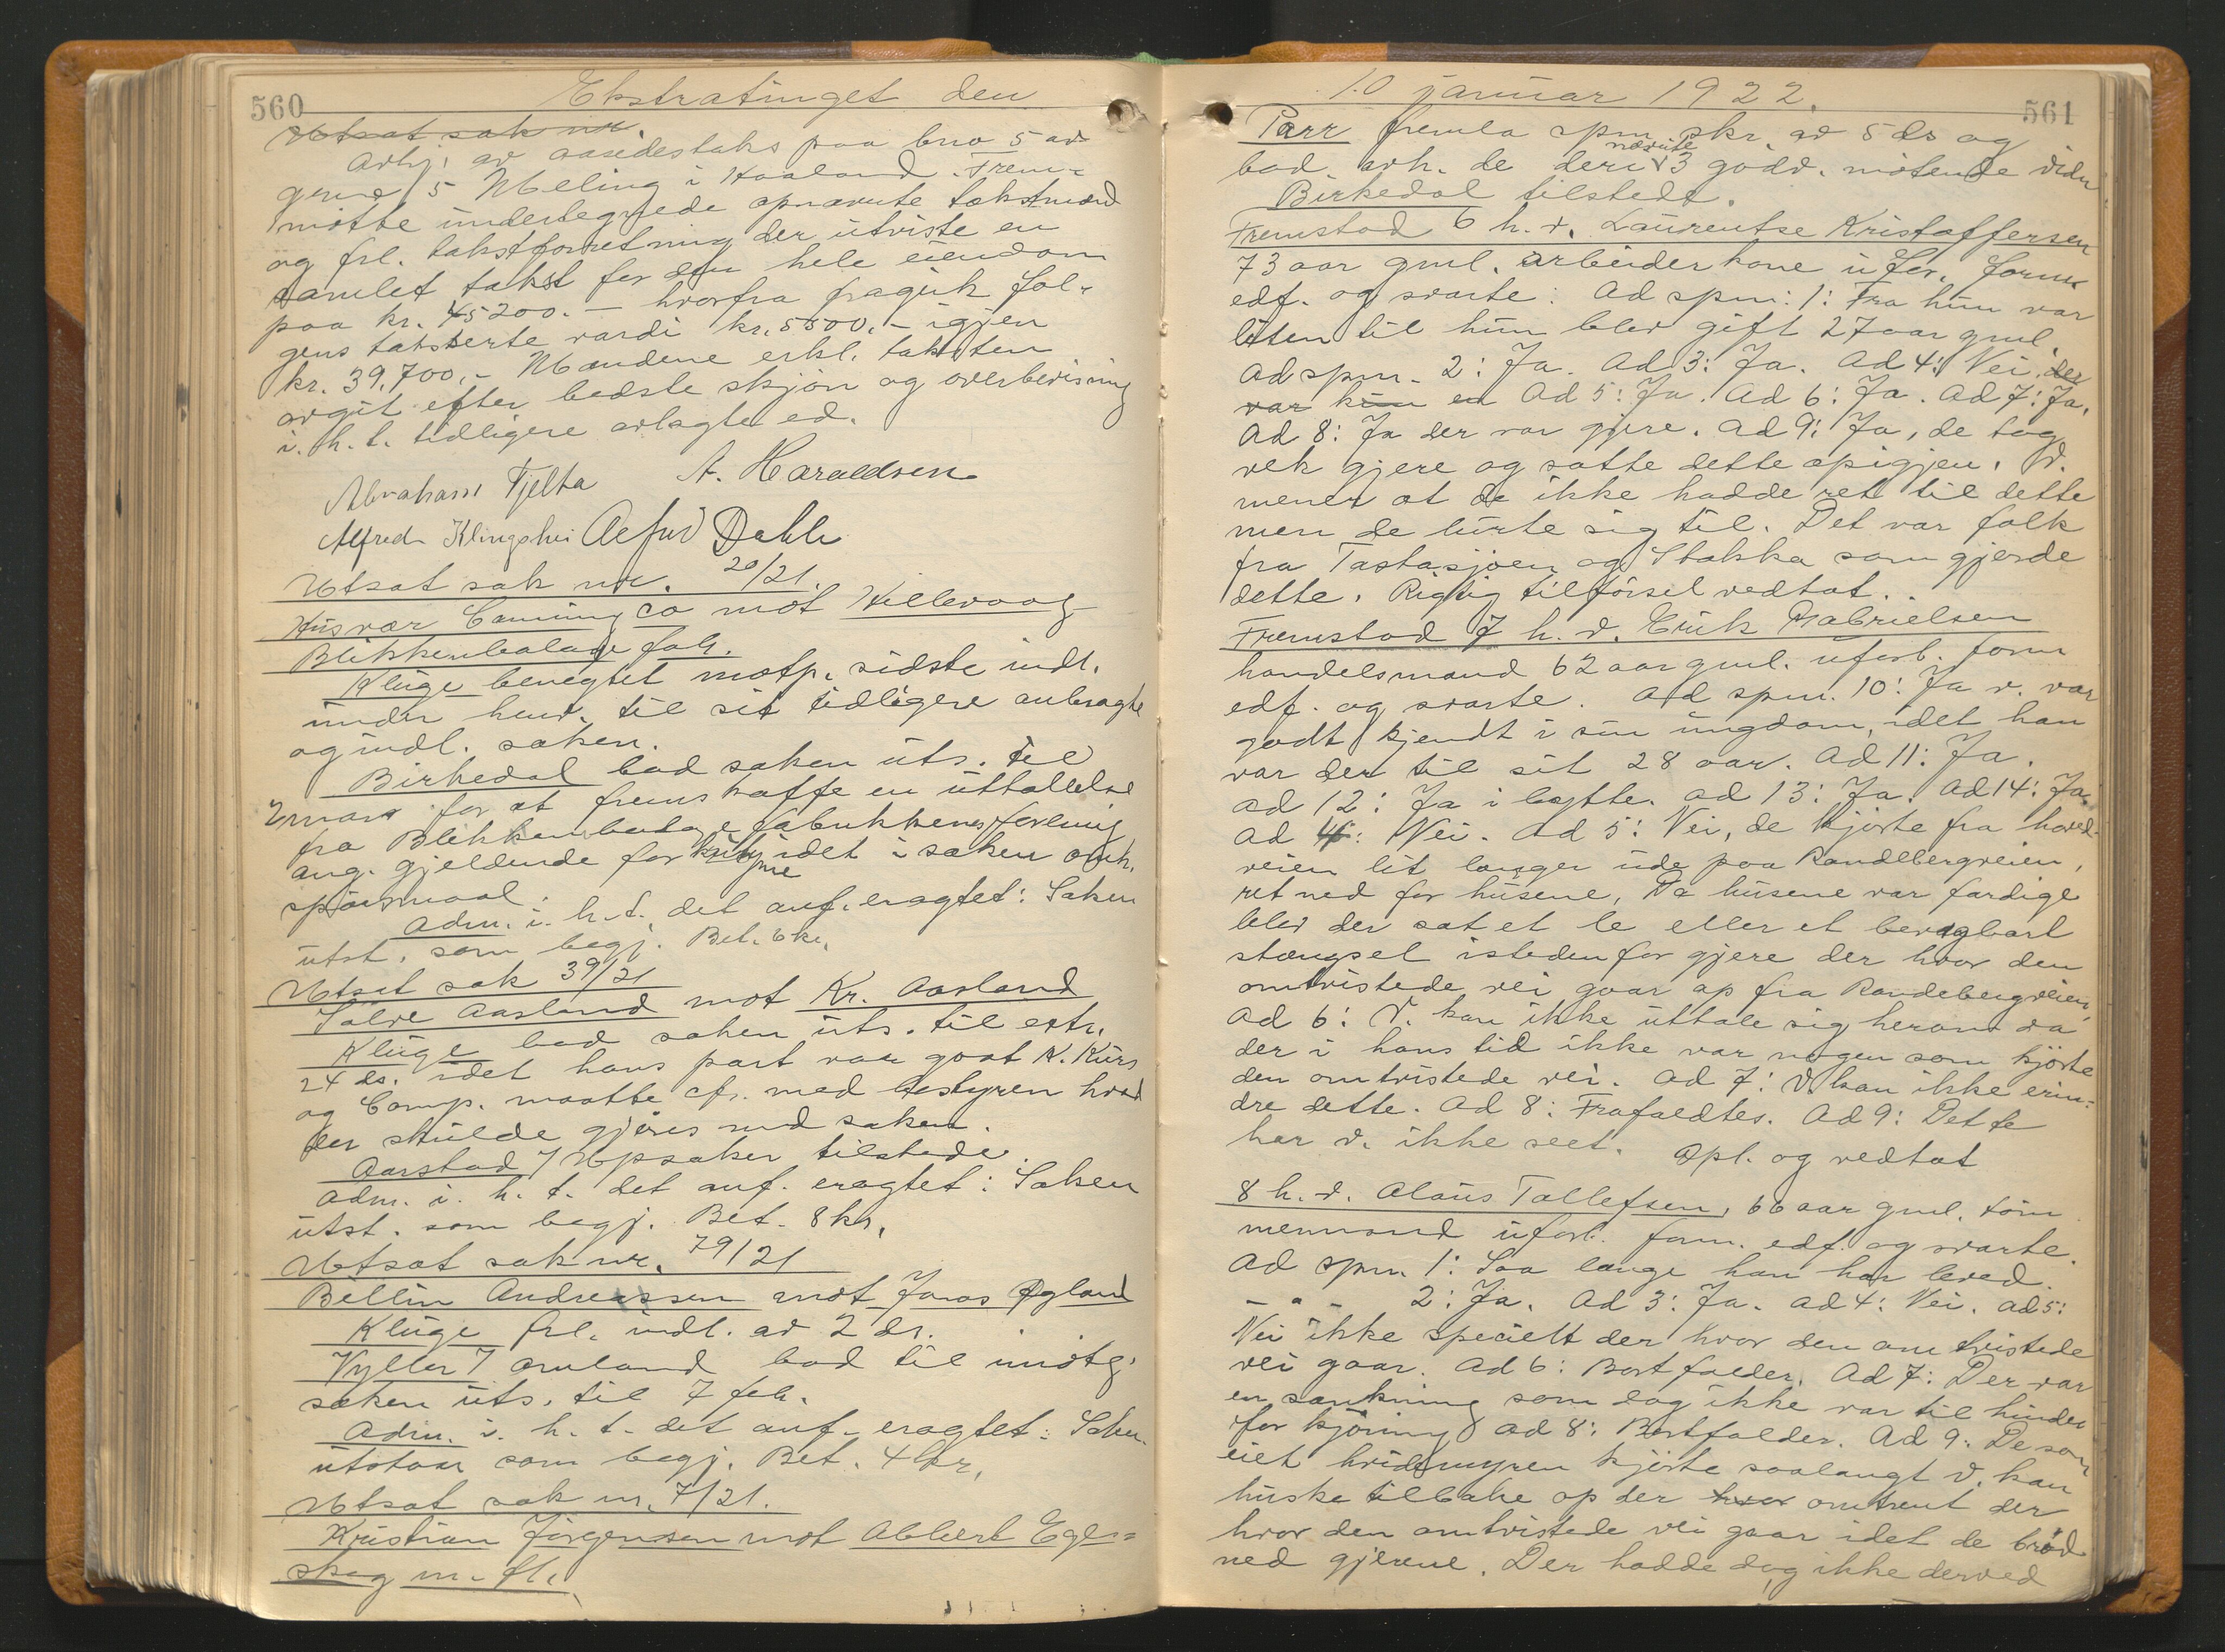 560
Ekstratinget den
Utsat sak nr.
Avhj. av aasædestakst paa bno 5 av
gnr. 5 Meling i Haaland. Frem-
møtte undertegnede opnævnte takstmænd
og frl. takstforretning der utviste en
samlet takst for den hele eiendom
paa kr. 45200.- hvorfra fragik föl-
gens taksterte værdi kr. 5500,- igjen
kr. 39,700,- Mændene erkl. taksten
avgit efter bedste skjön og overbevisning
i. h. t. tidligere avlagte ed.
Abraham Tjelta A. Haraldsen
Alfred Klingshei
Utsat sak nr. 20/21.
Husvær Canning Co mot Hellevaag
Blikkemballage fabr.
Kluge benegtet motp. sidste indl.
under henv. til sit tidligere anbragte
og indl. saken.
Birkedal bad saken uts. til
for at fremskaffe en uttallelse
fra Blikkemballage fabrikkenes forening
ang. gjeldende for idet i saken omh.
spörsmaal.
Adm. i. h. t. det anf. eragtet: Saken
utst. som begj. Bet. 6 kr.
Utsat sak 39/21
Salve Aasland mot Kr. Aasland
Kluge bad saken uts. til extr.
24 ds. idet hans part var gaat K. Kurs
og Comp. maatte cfr. med bestyren hvad
der skulde gjöres med saken.
Aarstad / Opsaker tilstede.
Adm. i. h. t. det anf. eragtet: Saken
utst. som begj. Bet. 8 kr.
Utsat sak nr. 79/21
Bellin Andreassen mot Jonas Ögland
Kluge frl. indl. av 2 ds.
Vyller / Omland bad til imøtg.
saken uts. til 7 feb.
Adm. i. h. t. det anf. eragtet: Saken
utstaar som begj. Bet. 4 kr.
Utsat sak nr. 7/21.
Kristian Jörgensen mot Albert Ege-
skog m. fl.
10 januar 1922.
561
Parr fremla spm. skr. av 5 ds og
nævnte
bad avh. de deri 3 godv. møtende vidn
Birkedal tilstede.
Fremstod 6 h. v. Laurentse Kristoffersen
73 aar gml. arbeiderkone ufor. form
edf. og svarte: Ad spm: 1: Fra hun var
liten til hun blev gift 27 aar gml.
Ad spm. 2: Ja. Ad 3: Ja. Ad 4: Nei. der
var kun en Ad 5: Ja. Ad 6: Ja. Ad 7: Ja.
Ad 8: Ja der var gjere. Ad 9: Ja, de tog
vek gjere og satte dette op igjen. V.
mener at de ikke hadde ret til dette
men de lurte sig til. Det var folk
fra Tastasjöen og Stokka som gjorde
dette. Rigtig tilförsel vedtat.
Fremstod 7 h. v. Erik Gabrielsen
handelsmand 62 aar gml. uforb. form
edf. og svarte. Ad spm. 10: Ja v. var
godt kjendt i sin ungdom, idet han
var der til sit 28 aar. Ad 11: Ja.
Ad 12: Ja i løfte. Ad 13: Ja. Ad 14: Ja.
Ad 4: Nei. Ad 5: Nei, de kjörte fra hoved-
veien lit længer ude paa Randebergveien,
ret ned for husene. Da husene var færdige
blev der sat et le eller et bevægbart
stængsel istedenfor gjere der hvor den
omtvistede vei gaar op fra Randebergveien,
Ad 6: V. kan ikke uttale sig herom da
der i hans tid ikke var nogen som kjörte
den omtvistede vei. Ad 7: V. kan ikke erin-
dre dette. Ad 8: Frafaldtes. Ad 9: Dette
har v. ikke seet. Opl. og vedtat
8 h. v. Olaus Tollefsen, 66 aar gml. töm
mermand uforb. form. edf. og svarte.
Ad spm 1: Saa længe han har leved.
- " - 2: Ja. Ad 3: Ja. Ad 4: Nei. Ad 5:
Nei ikke specielt der hvor den omtvistede
vei gaar. Ad 6: Bortfalder. Ad 7: Der var
en sænkning som dog ikke var til hinder
for kjöring. Ad 8: Bortfalder. Ad 9: De som
eiet hvidemyren kjörte saalangt v. kan
huske tilbake op der hvor omtrent der
hvor den omtvistede vei gaar idet de bröd
ned gjerene. Der hadde dog ikke derved